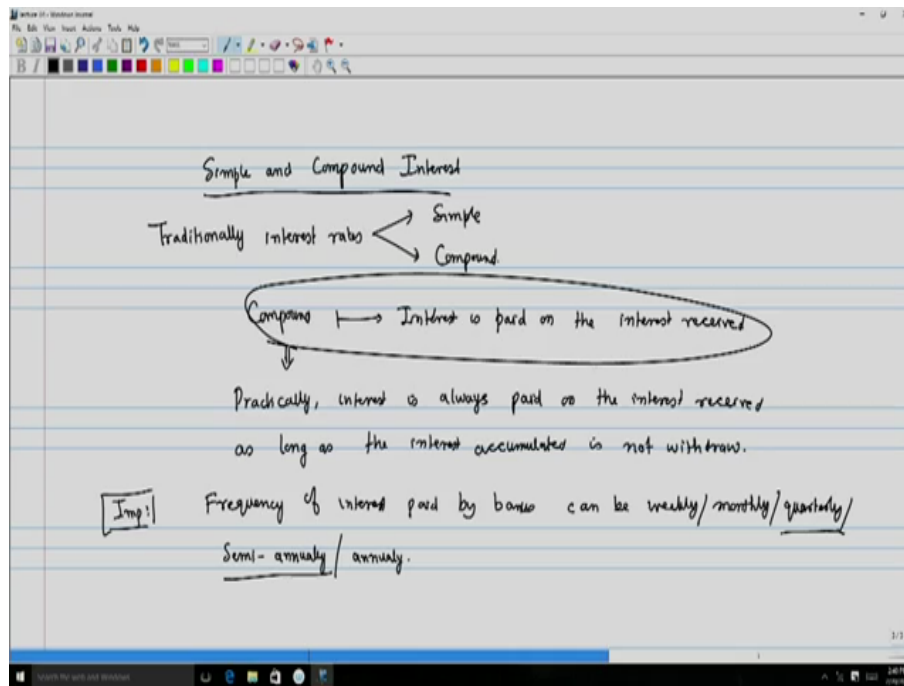 File Edit View Insert Actions Tools Help
B I
Simple and Compound Interest
Traditionally interest rates
Simple
Compound.
Compound ⟼ Interest is paid on the interest received
⇓
Practically, interest is always paid on the interest received
as long as the interest accumulated is not withdraw.
Imp: Frequency of interest paid by banks can be weekly/monthly/quarterly/
Semi-annualy/annualy.
Search the web and Windows